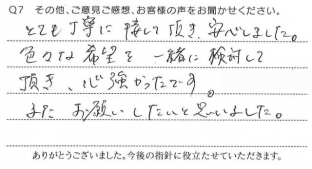 Q7 その他、ご意見ご感想、お客様の声をお聞かせください。
とても丁寧に接して頂き、安心しました。
色々な希望を一緒に検討して
頂き、心強かったです。
またお願いしたいと思いました。
ありがとうございました。今後の指針に役立たせていただきます。